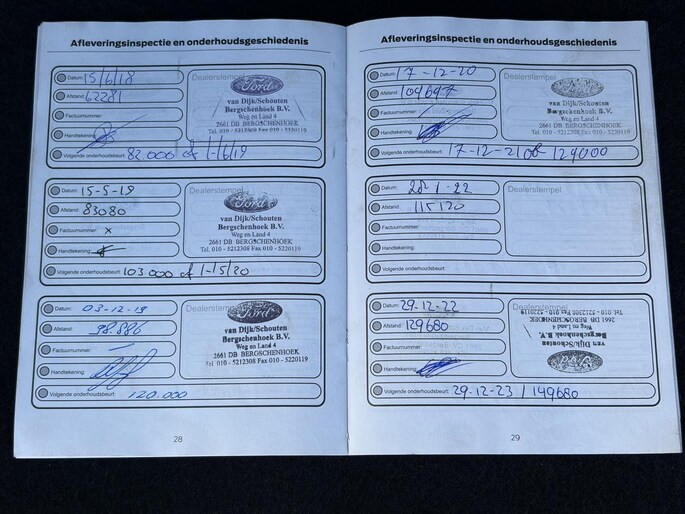 Afleveringsinspectie en onderhoudsgeschiedenis
Datum: 15/6/18
Afstand: 62281
Factuurnummer:
Handtekening:
Volgende onderhoudsbeurt: 82.000 of 1-16/19
Dealerstempel
Ford
van Dijk/Schouten
Bergschenhoek B.V.
Weg en Land 4
2661 DB BERGSCHENHOEK
Tel. 010 - 5212308 Fax 010 - 5220119
Datum: 15-5-19
Afstand: 83080
Factuurnummer: x
Handtekening:
Volgende onderhoudsbeurt: 103.000 of 1-15/20
Dealerstempel
Ford
van Dijk/Schouten
Bergschenhoek B.V.
Weg en Land 4
2661 DB BERGSCHENHOEK
Tel. 010 - 5212308 Fax 010 - 5220119
Datum: 03-12-19
Afstand: 98.896
Factuurnummer:
Handtekening:
Volgende onderhoudsbeurt: 120.000
Dealerstempel
Ford
van Dijk/Schouten
Bergschenhoek B.V.
Weg en Land 4
2661 DB BERGSCHENHOEK
Tel. 010 - 5212308 Fax 010 - 5220119
28
Afleveringsinspectie en onderhoudsgeschiedenis
Datum: 17-12-20
Afstand: 109697
Factuurnummer:
Handtekening:
Volgende onderhoudsbeurt: 17-12-21 of 129000
Dealerstempel
van Dijk/Schouten
Bergschenhoek B.V.
Weg en Land 4
2661 DB BERGSCHENHOEK
Tel. 010 - 5212308 Fax 010 - 5220119
Datum: 28 1-22
Afstand: 115120
Factuurnummer:
Handtekening:
Volgende onderhoudsbeurt:
Dealerstempel
Datum: 29-12-22
Afstand: 129680
Factuurnummer:
Handtekening:
Volgende onderhoudsbeurt: 29-12-23 / 149680
Dealerstempel
Ford
van Dijk/Schouten
Bergschenhoek B.V.
Weg en Land 4
2661 DB BERGSCHENHOEK
Tel. 010 - 5212308 Fax 010 - 5220119
29